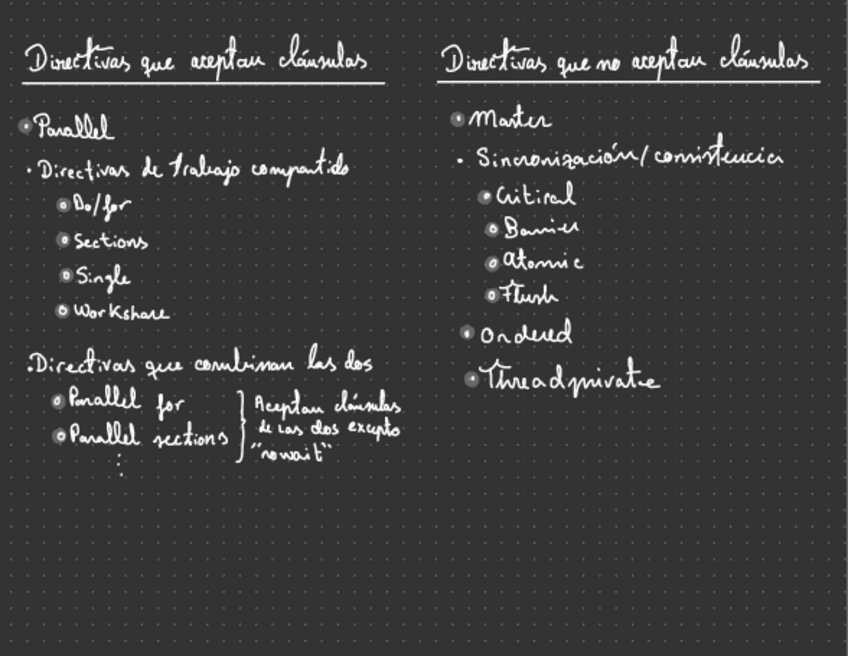 Directivas que aceptan cláusulas
• Parallel
• Directivas de trabajo compartido
• Do/for
• Sections
• Single
• Workshare
• Directivas que combinan las dos
• Parallel for
• Parallel sections
⋮
Aceptan cláusulas
de las dos excepto
"nowait"
Directivas que no aceptan cláusulas
• Master
• Sincronización/consistencia
• Critical
• Barrier
• Atomic
• Flush
• Ordered
• Threadprivate